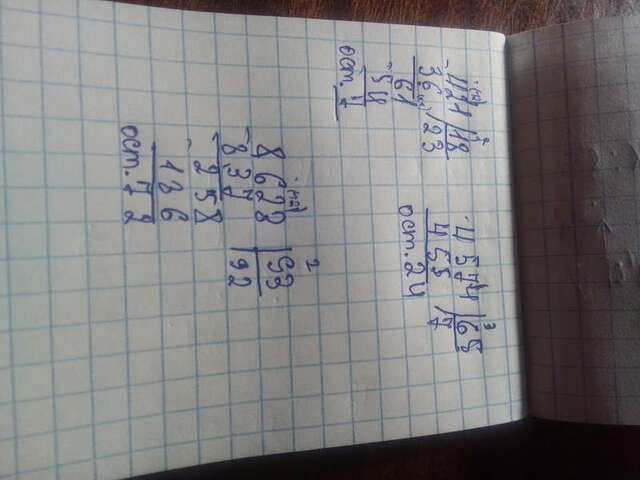 ·(+2) 2
-421 |18
36 |23
61
-54
ост. 7
3
-4574 |65
455 |7
ост. 24
·(+2) 2
-8628 |93
837 |92
-258
-186
ост. 72